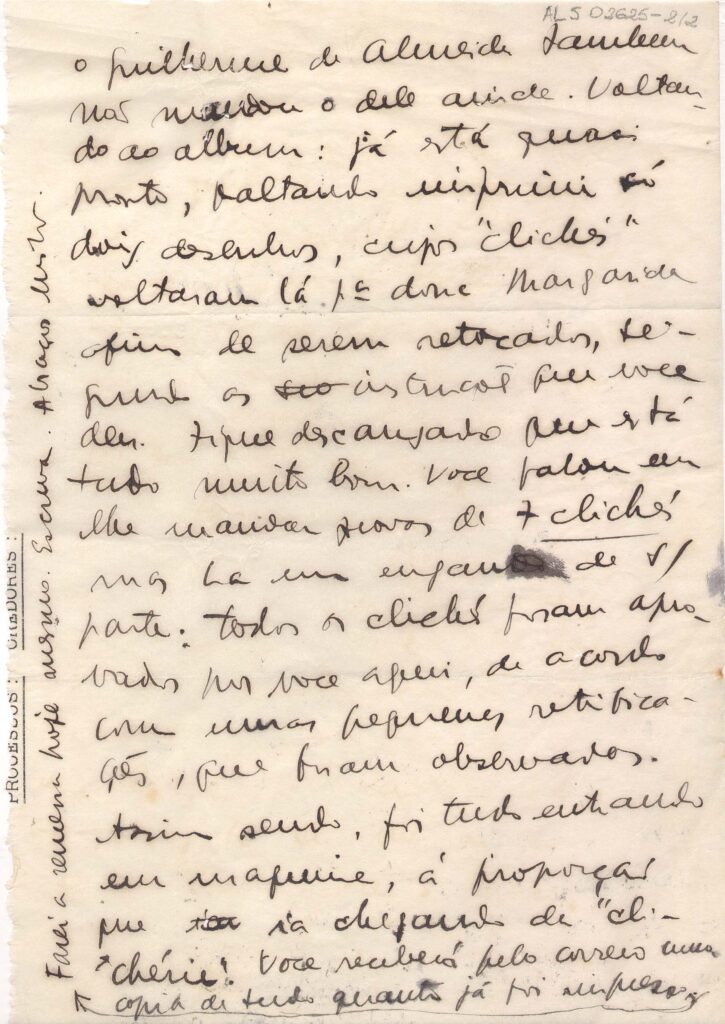 ALS 03625-2/2
o Guilherme de Almeida tambem
não mandou o dele ainda. Voltan-
do ao album: já está quasi
pronto, faltando imprimir só
dois desenhos, cujos "clichés"
voltaram lá pª dona Margarida
afim de serem retocados, se-
gundo as instruções que voce
deu. Fique descançado que está
tudo muito bom. Voce falou em
lhe mandar provas de 7 clichés
mas ha um engano de s/
parte: todos os clichés foram apro-
vados por voce aqui, de acordo
com umas pequenas retifica-
ções, que foram observadas.
Assim sendo, foi tudo entrando
em maquina, á proporção
que ia chegando da "cli-
cherie". Voce receberá pelo correio uma
copia de tudo quanto já foi impresso
Farei a remessa hoje mesmo. Escreva. Abraços
PROCESSOS: CREDORES: